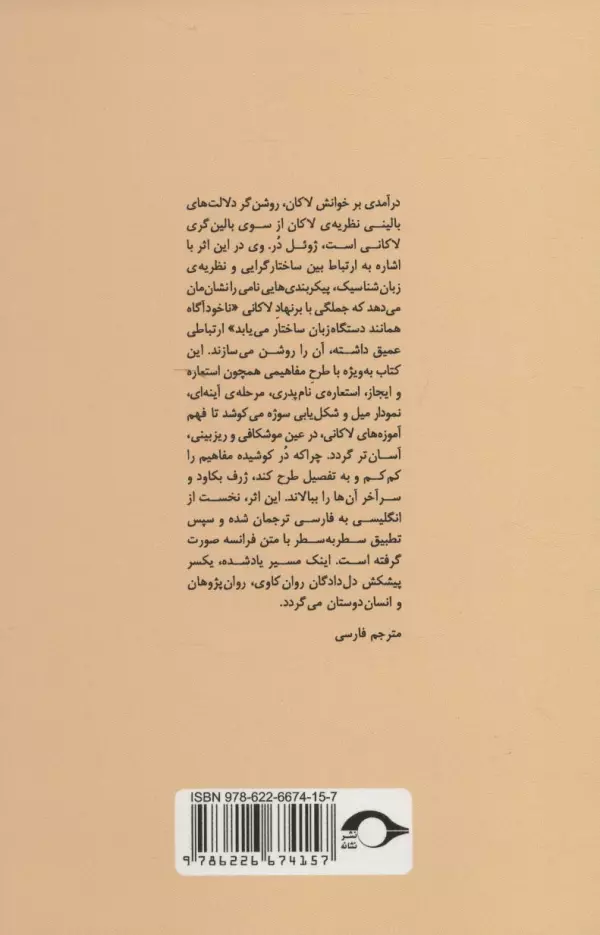 درآمدی بر خوانش لاکان، روشن‌گر دلالت‌های
بالینی نظریه‌ی لاکان از سوی بالین‌گری
لاکانی است، ژوئل دُر. وی در این اثر با
اشاره به ارتباط بین ساختارگرایی و نظریه‌ی
زبان‌شناسیک، پیکربندی‌هایی نامی را نشان‌مان
می‌دهد که جملگی با برنهادِ لاکانی «ناخودآگاه
همانند دستگاه زبان ساختار می‌یابد» ارتباطی
عمیق داشته، آن را روشن می‌سازند. این
کتاب به‌ویژه با طرح مفاهیمی همچون استعاره
و ایجاز، استعاره‌ی نام‌پدری، مرحله‌ی آینه‌ای،
نمودار میل و شکل‌یابی سوژه می‌کوشد تا فهم
آموزه‌های لاکانی، در عین موشکافی و ریزبینی،
آسان‌تر گردد. چراکه دُر کوشیده مفاهیم را
کم‌کم و به تفصیل طرح کند، ژرف بکاود و
سرآخر آن‌ها را ببالاند. این اثر، نخست از
انگلیسی به فارسی ترجمان شده و سپس
تطبیق سطربه‌سطر با متن فرانسه صورت
گرفته است. اینک مسیر یادشده، یکسر
پیشکش دل‌دادگان روان‌کاوی، روان‌پژوهان
و انسان‌دوستان می‌گردد.
مترجم فارسی
ISBN 978-622-6674-15-7
نشر
نشانه
9 786226 674157